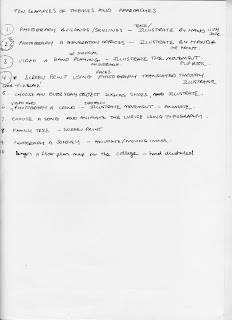 TEN EXAMPLES OF THEMES AND APPROACHES
TEXT/
1 PHOTOGRAPH BUILDINGS/SKYLINES - ILLUSTRATE BY HAND WITH
2 PHOTOGRAPH A GENERATION - ILLUSTRATE BY HAND OR
3 VIDEO A BAND PLAYING - ILLUSTRATE THE MOVEMENT.
4 SCREEN PRINT USING PHOTOGRAPHY TRANSLATED THROUGH
5. CHOOSE AN EVERYDAY OBJECT SUCH AS SHOES, AND ILLUSTRATE.
6. PHOTOGRAPH A CROWD - ILLUSTRATE MOVEMENT - ANIMATE.
7. CHOOSE A SONG AND ANIMATE THE LYRICS USING TYPOGRAPHY.
8. FAMILY TREE - SCREEN PRINT
9 PHOTOGRAPH A - ANIMATE/MOVING IMAGE.
10 Design a floor plan map for the college - hand illustrated